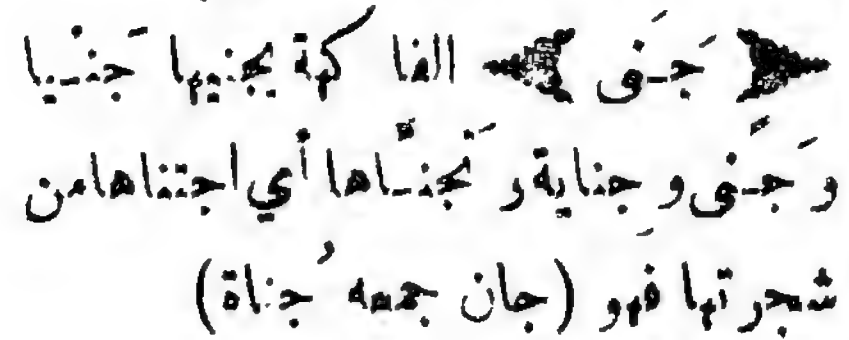 ﴿ جَـنَى ﴾ الفاكهة يجنيها جَنْـيا
وَجَـنًى وجِناية وتَجنَّـاها أي اجتناها من
شجرتها فهو (جان جمعه جُناة)